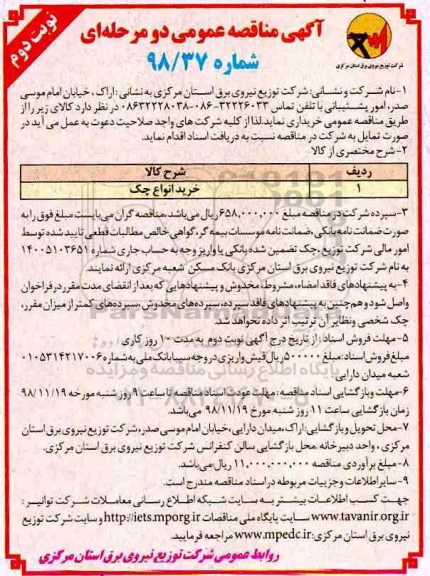 نوبت دوم
آگهی مناقصه عمومی دو مرحله‌ای
شماره ۹۸/۳۷
شرکت توزیع نیروی برق استان مرکزی
۱-نام شرکت و نشانی: شرکت توزیع نیروی برق استان مرکزی به نشانی: اراک، خیابان امام موسی
صدر، امور پشتیبانی با تلفن تماس ۳۲۲۲۶۰۳۳-۰۸۶-۰۸۶۳۲۲۲۸۰۳۸ در نظر دارد کالای زیر را از
طریق مناقصه عمومی خریداری نماید، لذا از کلیه شرکت های واجد صلاحیت دعوت به عمل می آید در
صورت تمایل به شرکت در مناقصه نسبت به دریافت اسناد اقدام نماید.
۲-شرح مختصری از کالا
ردیف شرح کالا
۱ خرید انواع جک
۳-سپرده شرکت در مناقصه مبلغ ۶۵۸,۰۰۰,۰۰۰ ریال می باشد، مناقصه گران می بایست مبلغ فوق را به
صورت ضمانت نامه بانکی، ضمانت نامه موسسات بیمه گر، گواهی خالص مطالبات قطعی تایید شده توسط
امور مالی شرکت توزیع، چک تضمین شده بانکی یا واریز وجه به حساب جاری شماره ۱۴۰۰۵۱۰۳۶۵۱
به نام شرکت توزیع نیروی برق استان مرکزی بانک مسکن شعبه مرکزی ارائه نمایند.
۴-به پیشنهادهای فاقد امضاء، مشروط، مخدوش و پیشنهادهایی که بعد از انقضای مدت مقرر در فراخوان
واصل شود و هم چنین به پیشنهادهای فاقد سپرده، سپرده های مخدوش، سپرده های کمتر از میزان مقرر،
چک شخصی و نظایر آن ترتیب اثر داده نخواهد شد.
۵-مهلت فروش اسناد: از تاریخ درج آگهی نوبت دوم به مدت ۱۰ روز کاری
مبلغ فروش اسناد: مبلغ ۵۰۰۰۰۰ ریال فیش واریزی در وجه سیبا بانک ملی به شماره ۰۱۰۵۳۱۴۲۱۷۰۰۶
شعبه میدان دارایی
۶-مهلت و بازگشایی اسناد مناقصه: مهلت عودت اسناد مناقصه تا ساعت ۹ روز شنبه مورخه ۹۸/۱۱/۱۹
زمان بازگشایی ساعت ۱۱ روز شنبه مورخ ۹۸/۱۱/۱۹ می باشد.
۷-محل تحویل و بازگشایی: اراک، میدان دارایی، خیابان امام موسی صدر، شرکت توزیع نیروی برق استان
مرکزی، واحد دبیرخانه، محل بازگشایی سالن کنفرانس شرکت توزیع نیروی برق استان مرکزی.
۸-مبلغ برآوردی مناقصه ۱۱,۰۰۰,۰۰۰,۰۰۰ ریال می باشد.
۹-سایر اطلاعات و جزییات مربوطه در اسناد مناقصه مندرج است.
جهت کسب اطلاعات بیشتر به سایت شبکه اطلاع رسانی معاملات شرکت توانیر:
www.tavanir.org.ir سایت پایگاه ملی مناقصات http://iets.mporg.ir و سایت شرکت توزیع
نیروی برق استان مرکزی: www.mpedc.ir مراجعه فرمایید.
روابط عمومی شرکت توزیع نیروی برق استان مرکزی